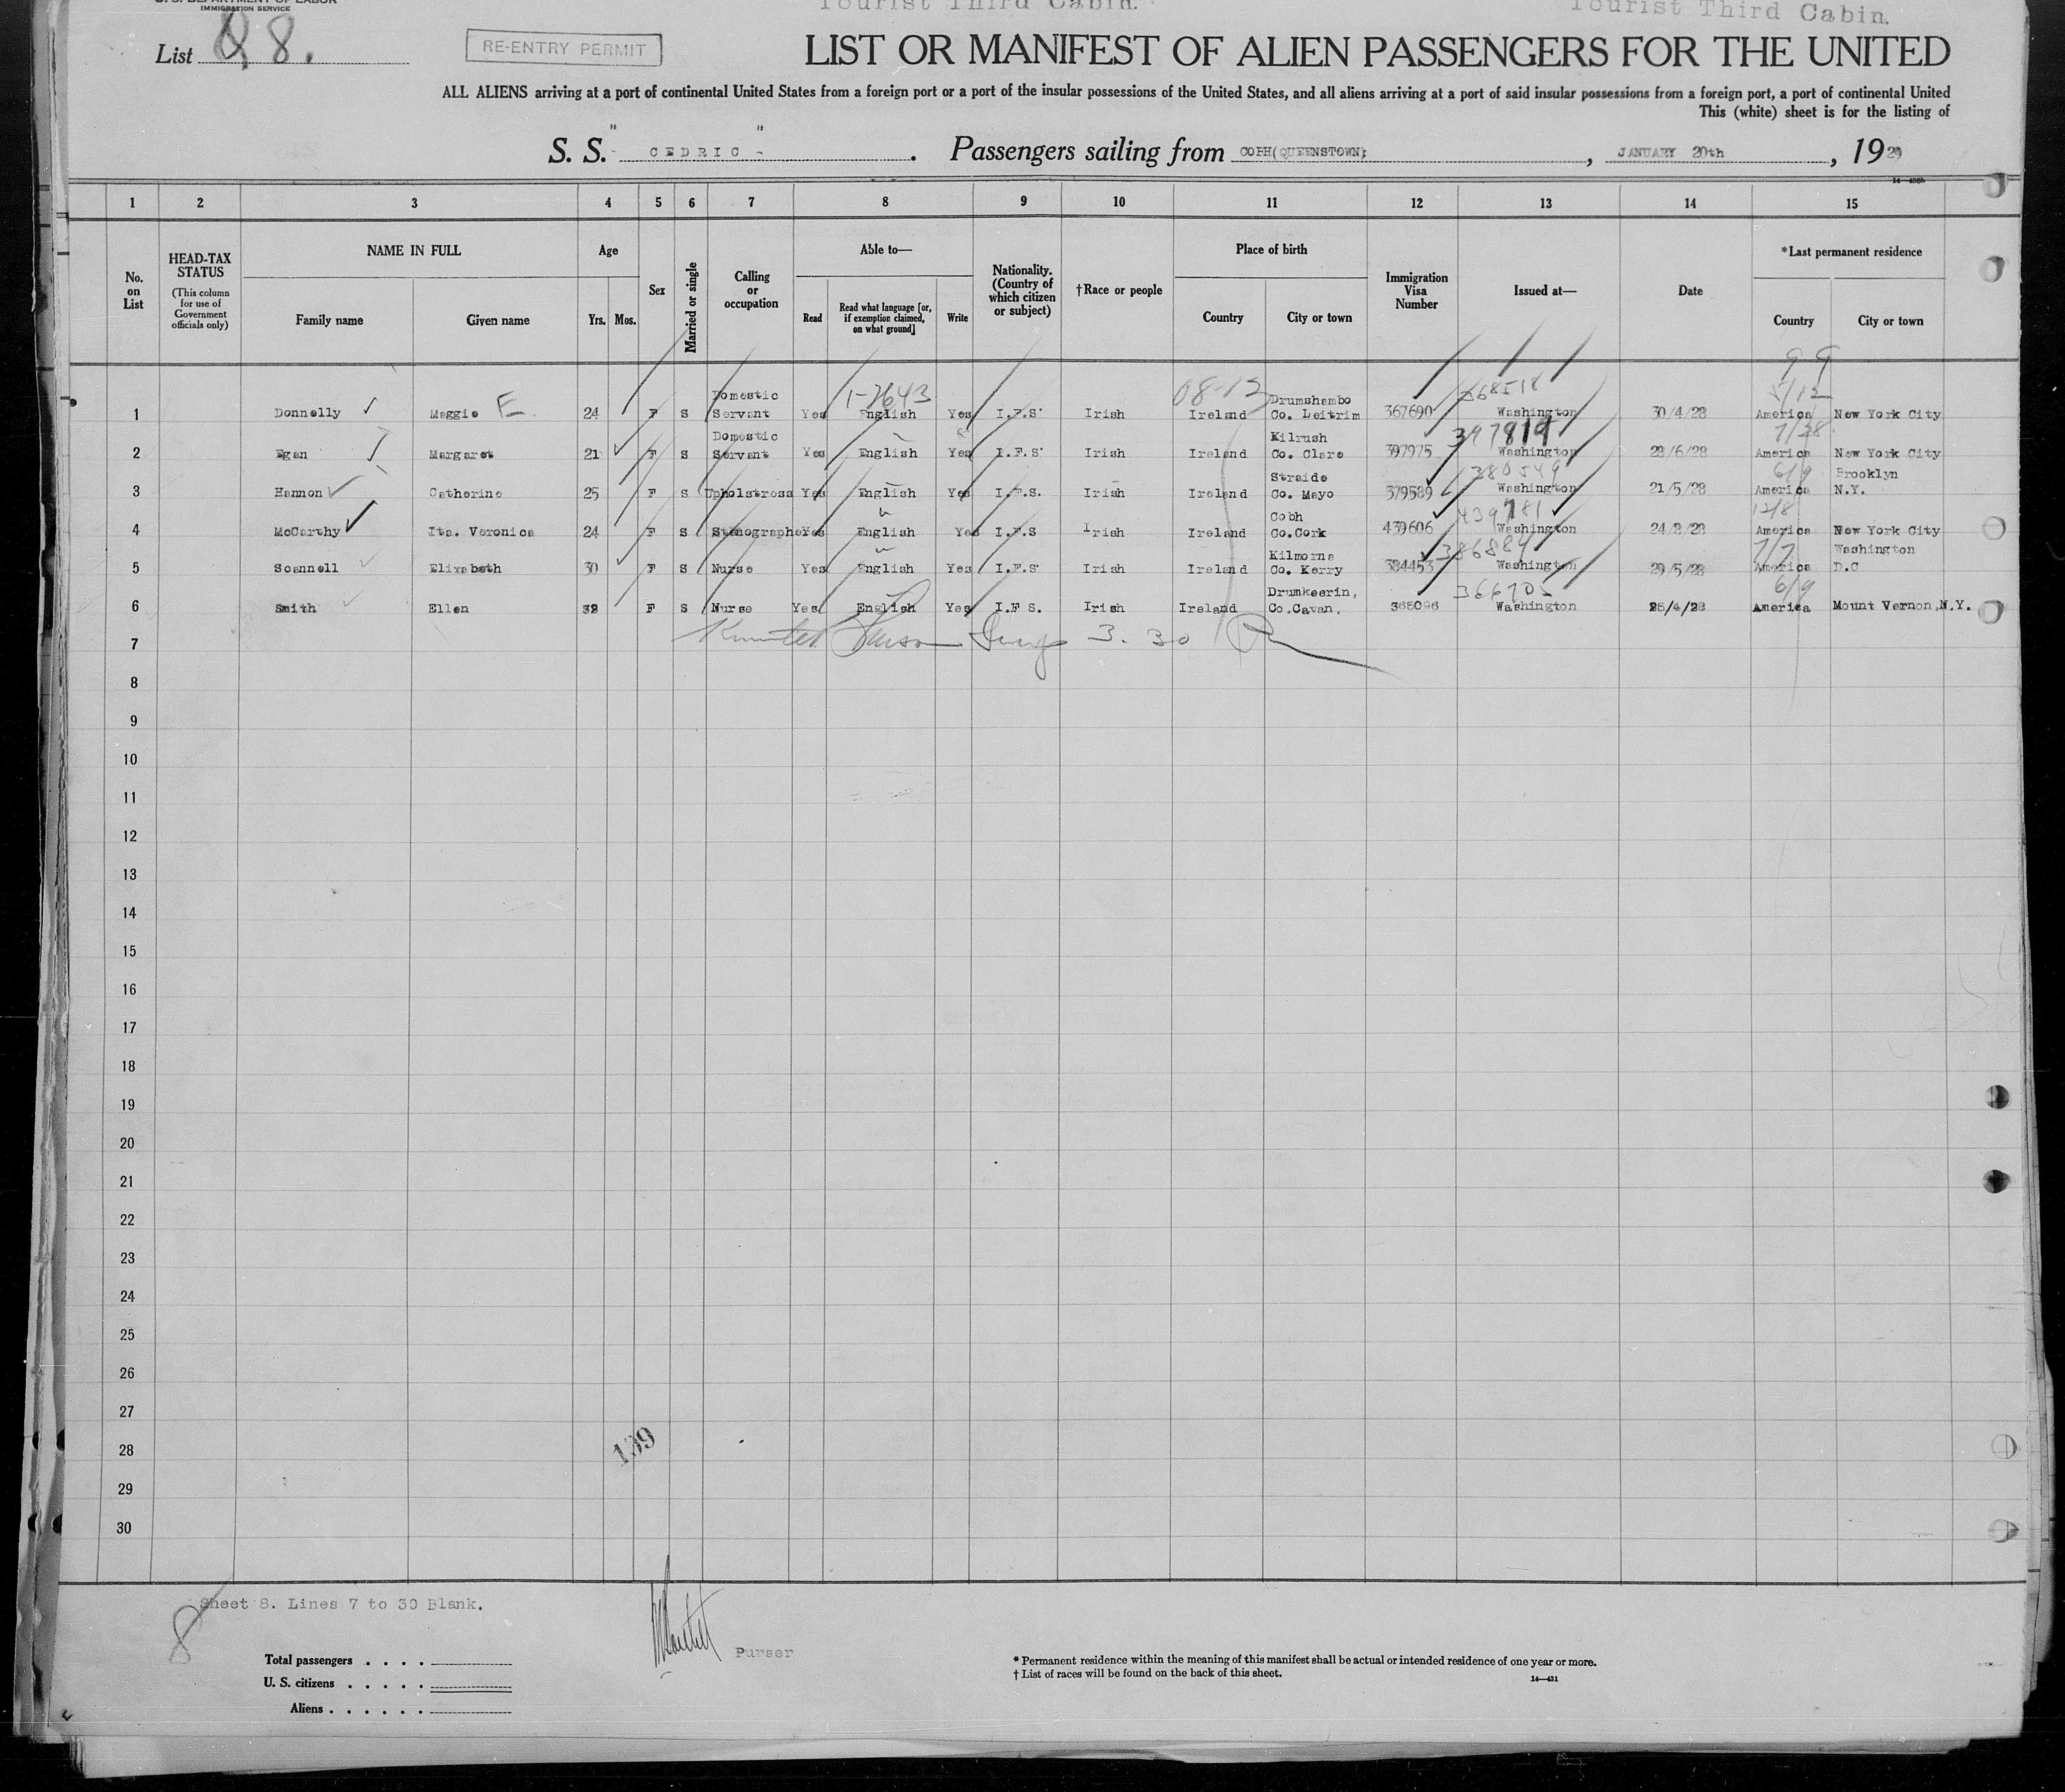 U. S. DEPARTMENT OF LABOR
IMMIGRATION SERVICE
Tourist Third Cabin. Tourist Third Cabin.
List 8.
RE-ENTRY PERMIT
LIST OR MANIFEST OF ALIEN PASSENGERS FOR THE UNITED
ALL ALIENS arriving at a port of continental United States from a foreign port or a port of the insular possessions of the United States, and all aliens arriving at a port of said insular possessions from a foreign port, a port of continental United
This (white) sheet is for the listing of
S. S. " CEDRIC " . Passengers sailing from COBH(QUEENSTOWN) , JANUARY 20th , 1929
14—430b
1 2 3 4 5 6 7 8 9 10 11 12 13 14 15
No. on List
HEAD-TAX STATUS (This column for use of Government officials only)
NAME IN FULL Family name Given name
Age Yrs. Mos.
Sex
Married or single
Calling or occupation
Able to— Read Read what language [or, if exemption claimed, on what ground] Write
Nationality. (Country of which citizen or subject)
†Race or people
Place of birth Country City or town
Immigration Visa Number
Issued at—
Date
*Last permanent residence Country City or town
1 Donnelly Maggie E 24 F S Domestic Servant Yes 1-7643 English Yes I.F.S. Irish 08-13 Ireland Drumshambo Co. Leitrim 367690 368518 Washington 30/4/28 5/12 America New York City
2 Egan Margaret 21 F S Domestic Servant Yes English Yes I.F.S. Irish Ireland Kilrush Co. Clare 397975 397819 Washington 28/6/28 7/28 America New York City
3 Hannon Catherine 25 F S Upholstress Yes English Yes I.F.S. Irish Ireland Straide Co. Mayo 379589 380549 Washington 21/5/28 6/9 America Brooklyn N.Y.
4 McCarthy Ita. Veronica 24 F S Stenographer Yes English Yes I.F.S Irish Ireland Cobh Co.Cork 439606 439781 Washington 24/8/28 12/8 America New York City
5 Scannell Elizabeth 30 F S Nurse Yes English Yes I.F.S. Irish Ireland Kilmorna Co. Kerry 384453 386884 Washington 29/5/28 7/7 America Washington D.C
6 Smith Ellen 32 F S Nurse Yes English Yes I.F S. Irish Ireland Drumkeerin, Co.Cavan. 365096 366705 Washington 25/4/28 6/9 America Mount Vernon N.Y.
7 3. 30
8
9
10
11
12
13
14
15
16
17
18
19
20
21
22
23
24
25
26
27
28
139
29
30
8 Sheet 8. Lines 7 to 30 Blank.
Purser
Total passengers . . . .
U. S. citizens . . . . .
Aliens . . . . . .
* Permanent residence within the meaning of this manifest shall be actual or intended residence of one year or more.
† List of races will be found on the back of this sheet.
14—431